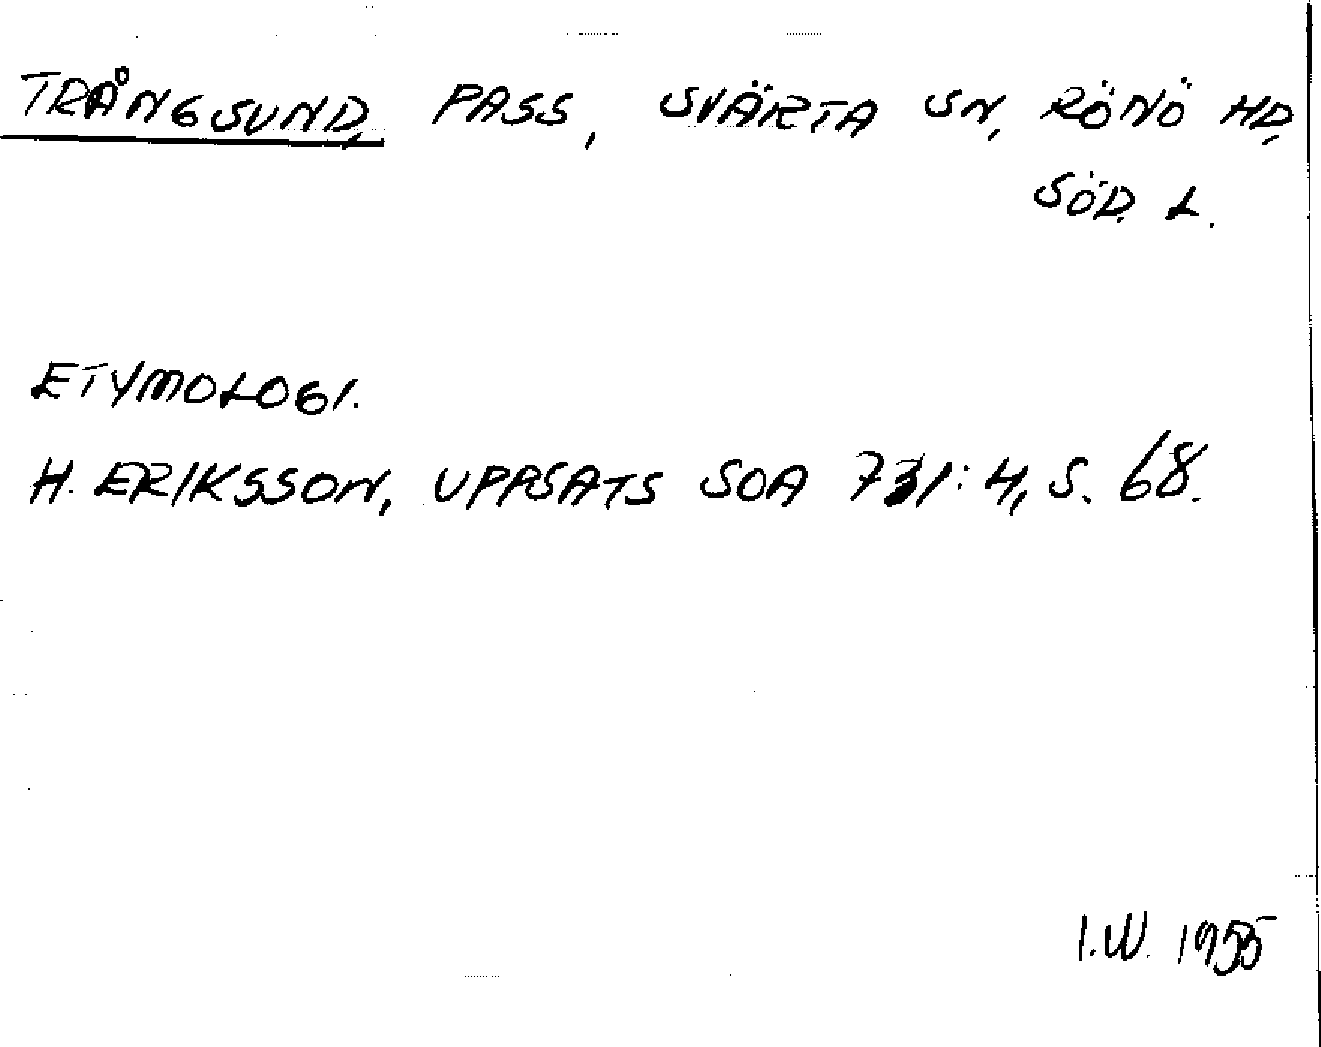 TRÅNGSUND, PASS, SVÄRTA SN, RÖNÖ HD,
SÖD. L.
ETYMOLOGI.
H. ERIKSSON, UPPSATS SOA 731:4, S. 68.
I.W. 1955